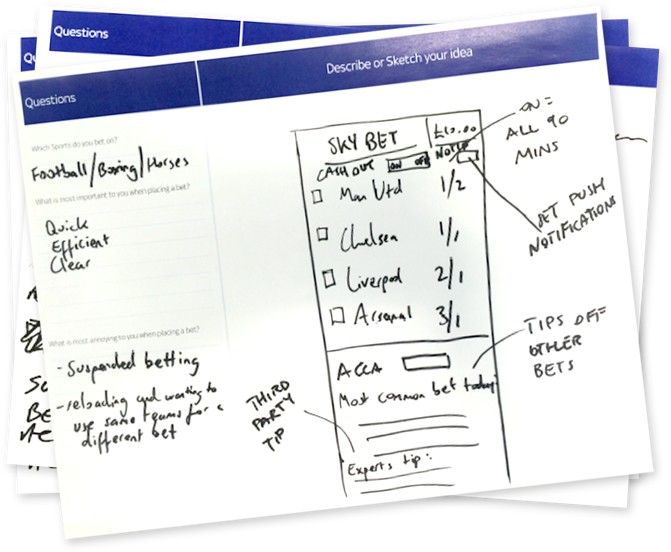 Questions
Questions
Describe or Sketch your idea
Which Sports do you bet on?
Football/Boxing/Horses
What is most important to you when placing a bet?
Quick
Efficient
Clear
What is most annoying to you when placing a bet?
- Suspended betting
- reloading and wanting to
use same teams for a
different bet
SKY BET
£10.00
CASH OUT ON OFF NOTIF
Man Utd 1/2
Chelsea 1/1
Liverpool 2/1
Arsenal 3/1
ACCA
Most common bet today:
Experts tip:
ON =
ALL 90
MINS
BET PUSH
NOTIFICATIONS
TIPS OFF
OTHER
BETS
THIRD
PARTY
TIP